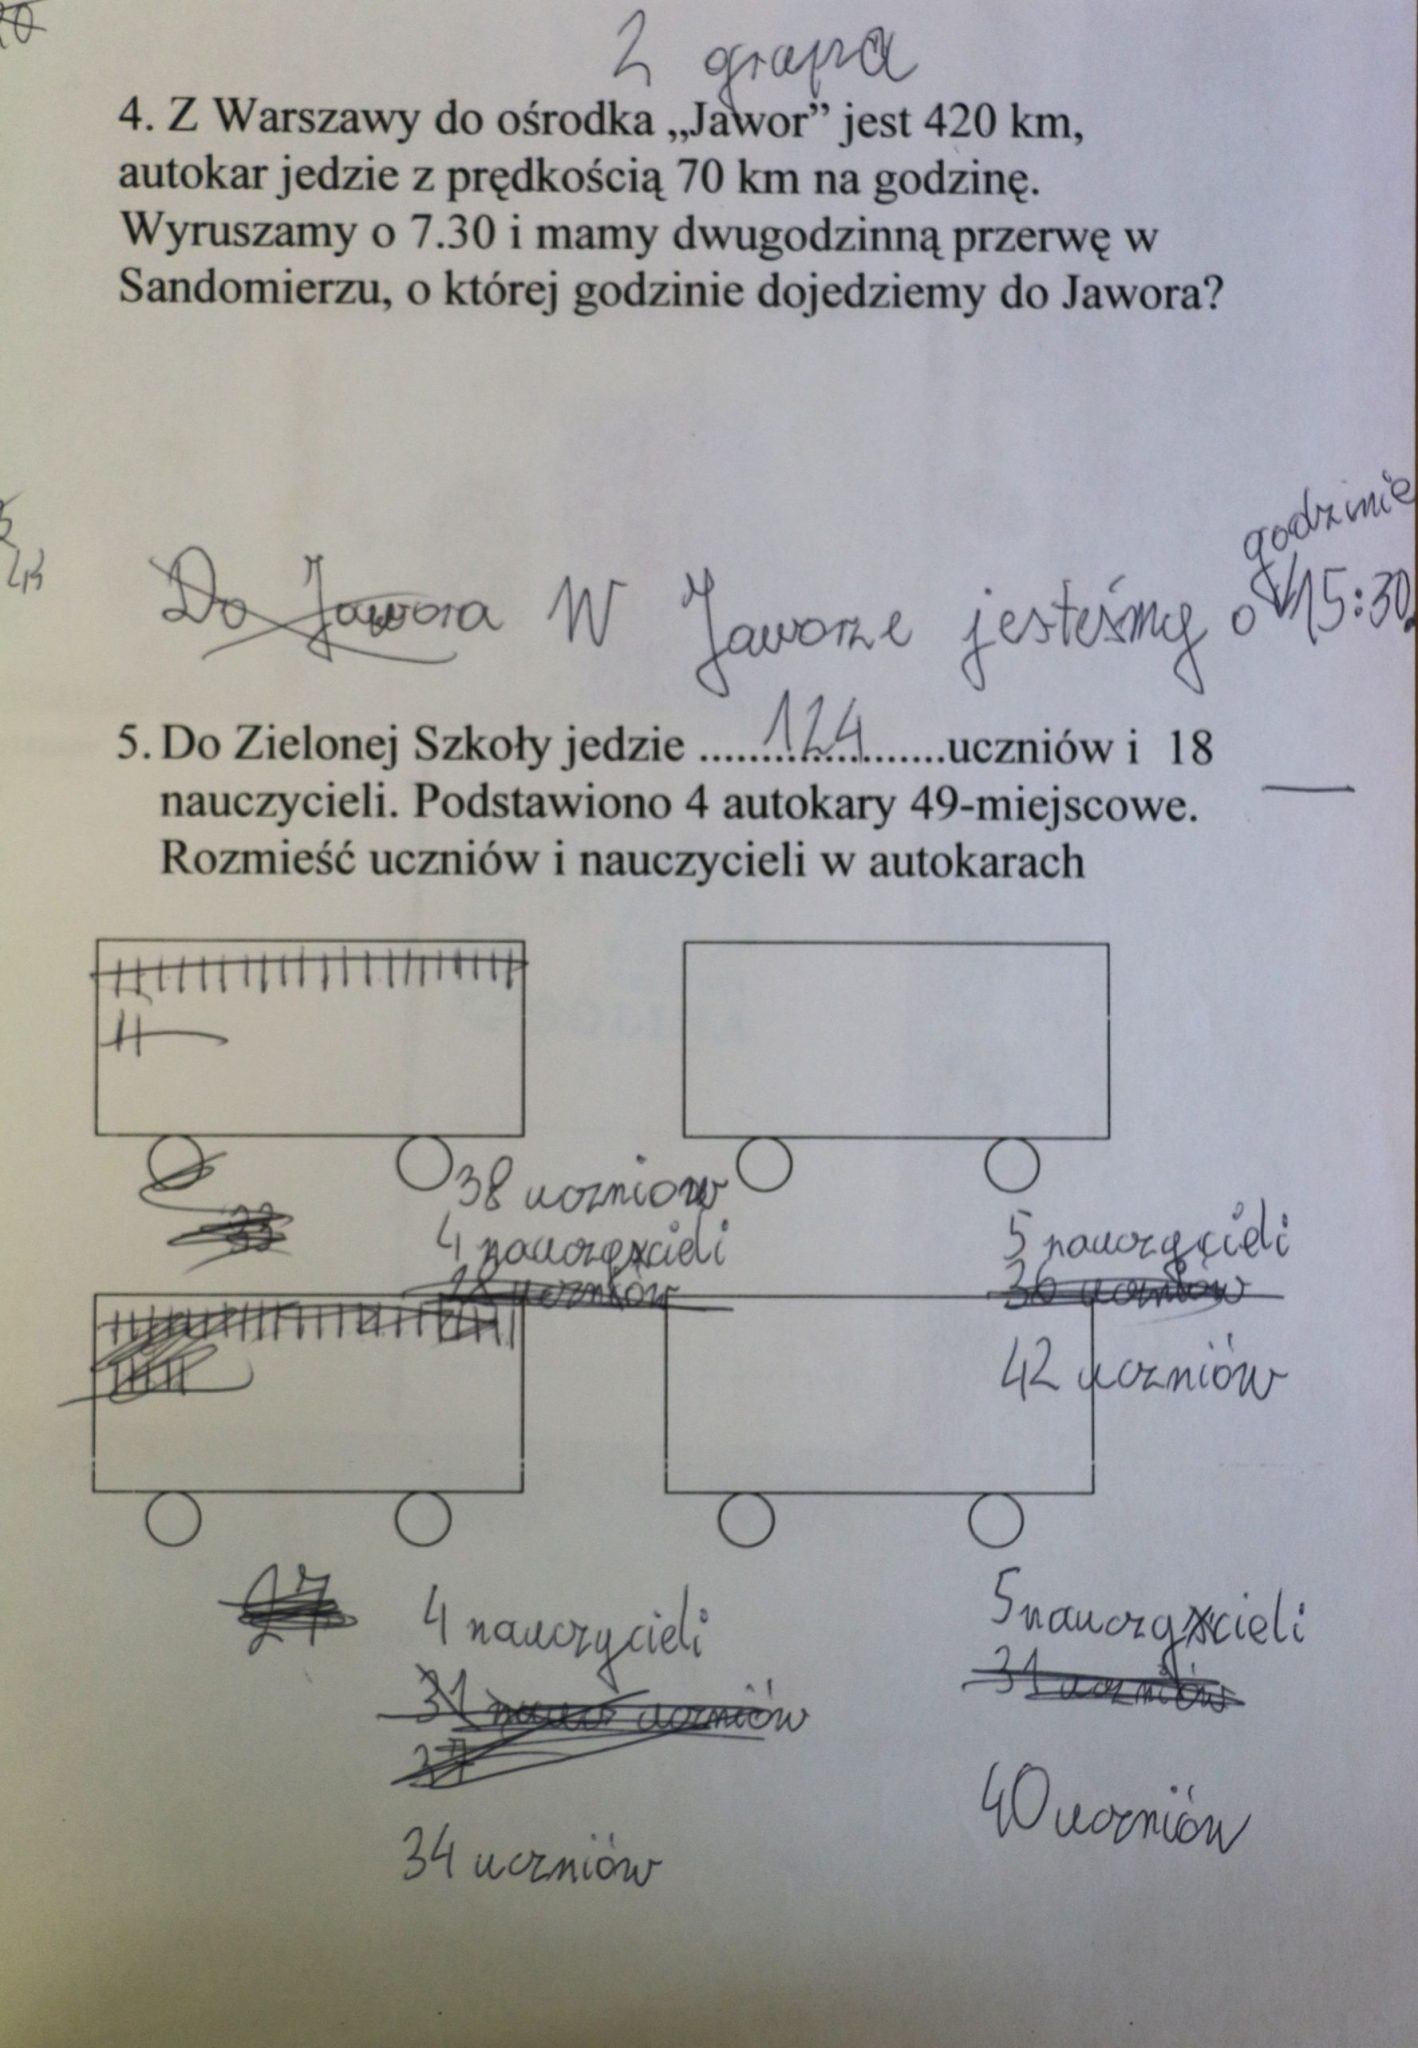 2 grupa
4. Z Warszawy do ośrodka „Jawor” jest 420 km,
autokar jedzie z prędkością 70 km na godzinę.
Wyruszamy o 7.30 i mamy dwugodzinną przerwę w
Sandomierzu, o której godzinie dojedziemy do Jawora?
Do Jawora W Jaworze jesteśmy o godzinie 15:30.
5. Do Zielonej Szkoły jedzie ......124......uczniów i 18
nauczycieli. Podstawiono 4 autokary 49-miejscowe.
Rozmieść uczniów i nauczycieli w autokarach
38 uczniów
33
4 nauczycieli
5 nauczycieli
28 uczniów
36 uczniów
42 uczniów
27
4 nauczycieli
5 nauczycieli
31 uczniów
31 uczniów
37
34 uczniów
40 uczniów